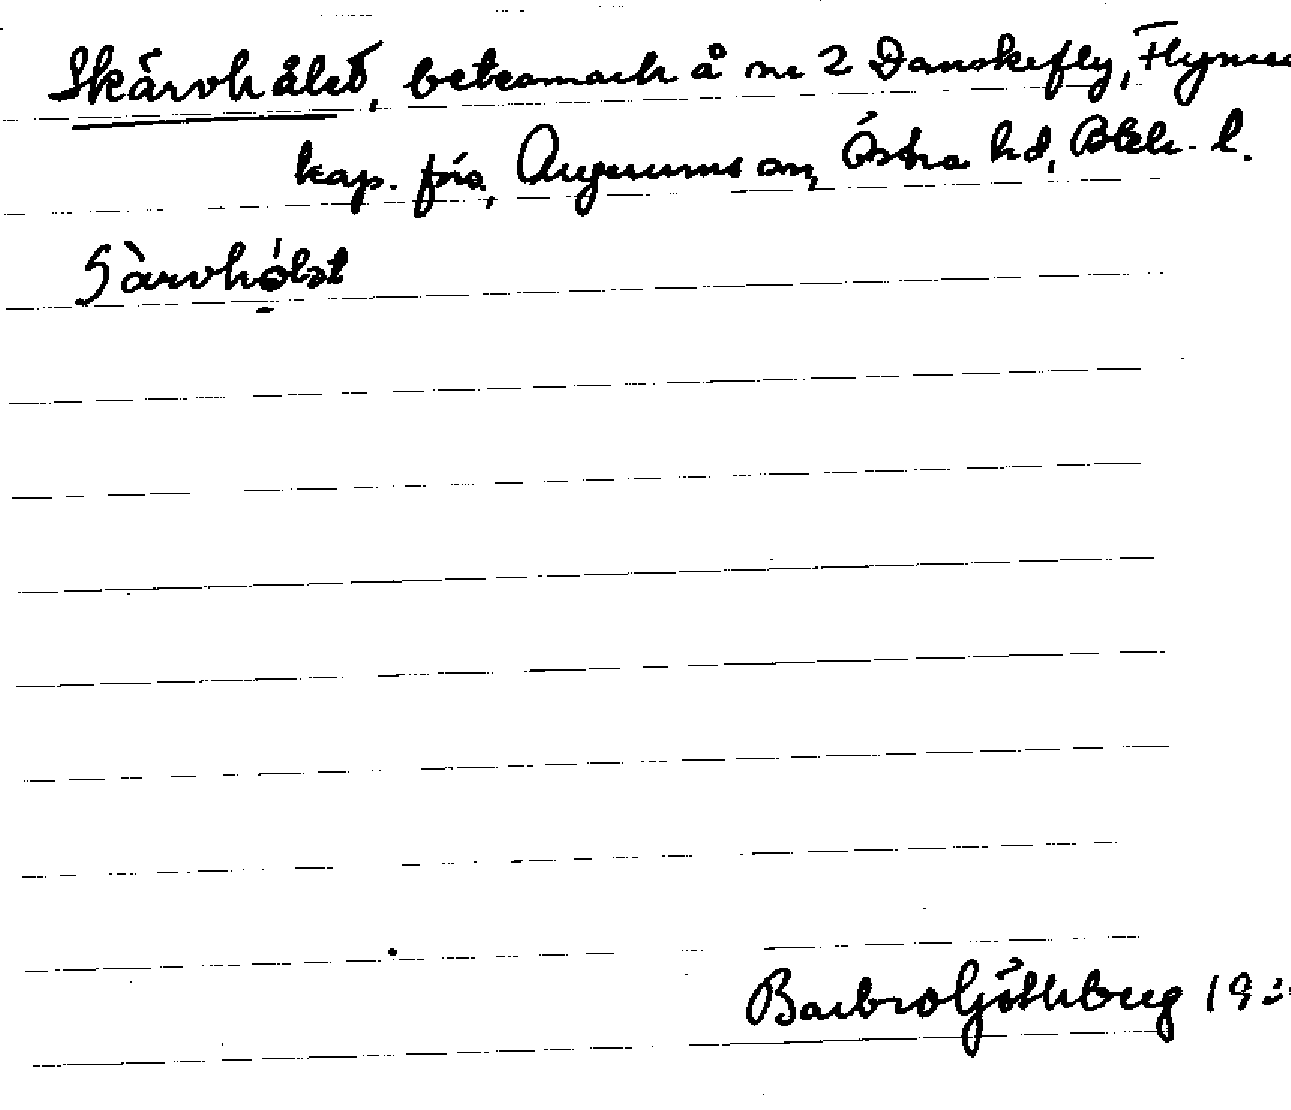 Skärvhålet, betesmark å nr 2 Danskefly, Flymen
kap. förs., Augerums sn, Östra hd, Blek. l.
ʃàrvhólət
Barbro Göthberg 19